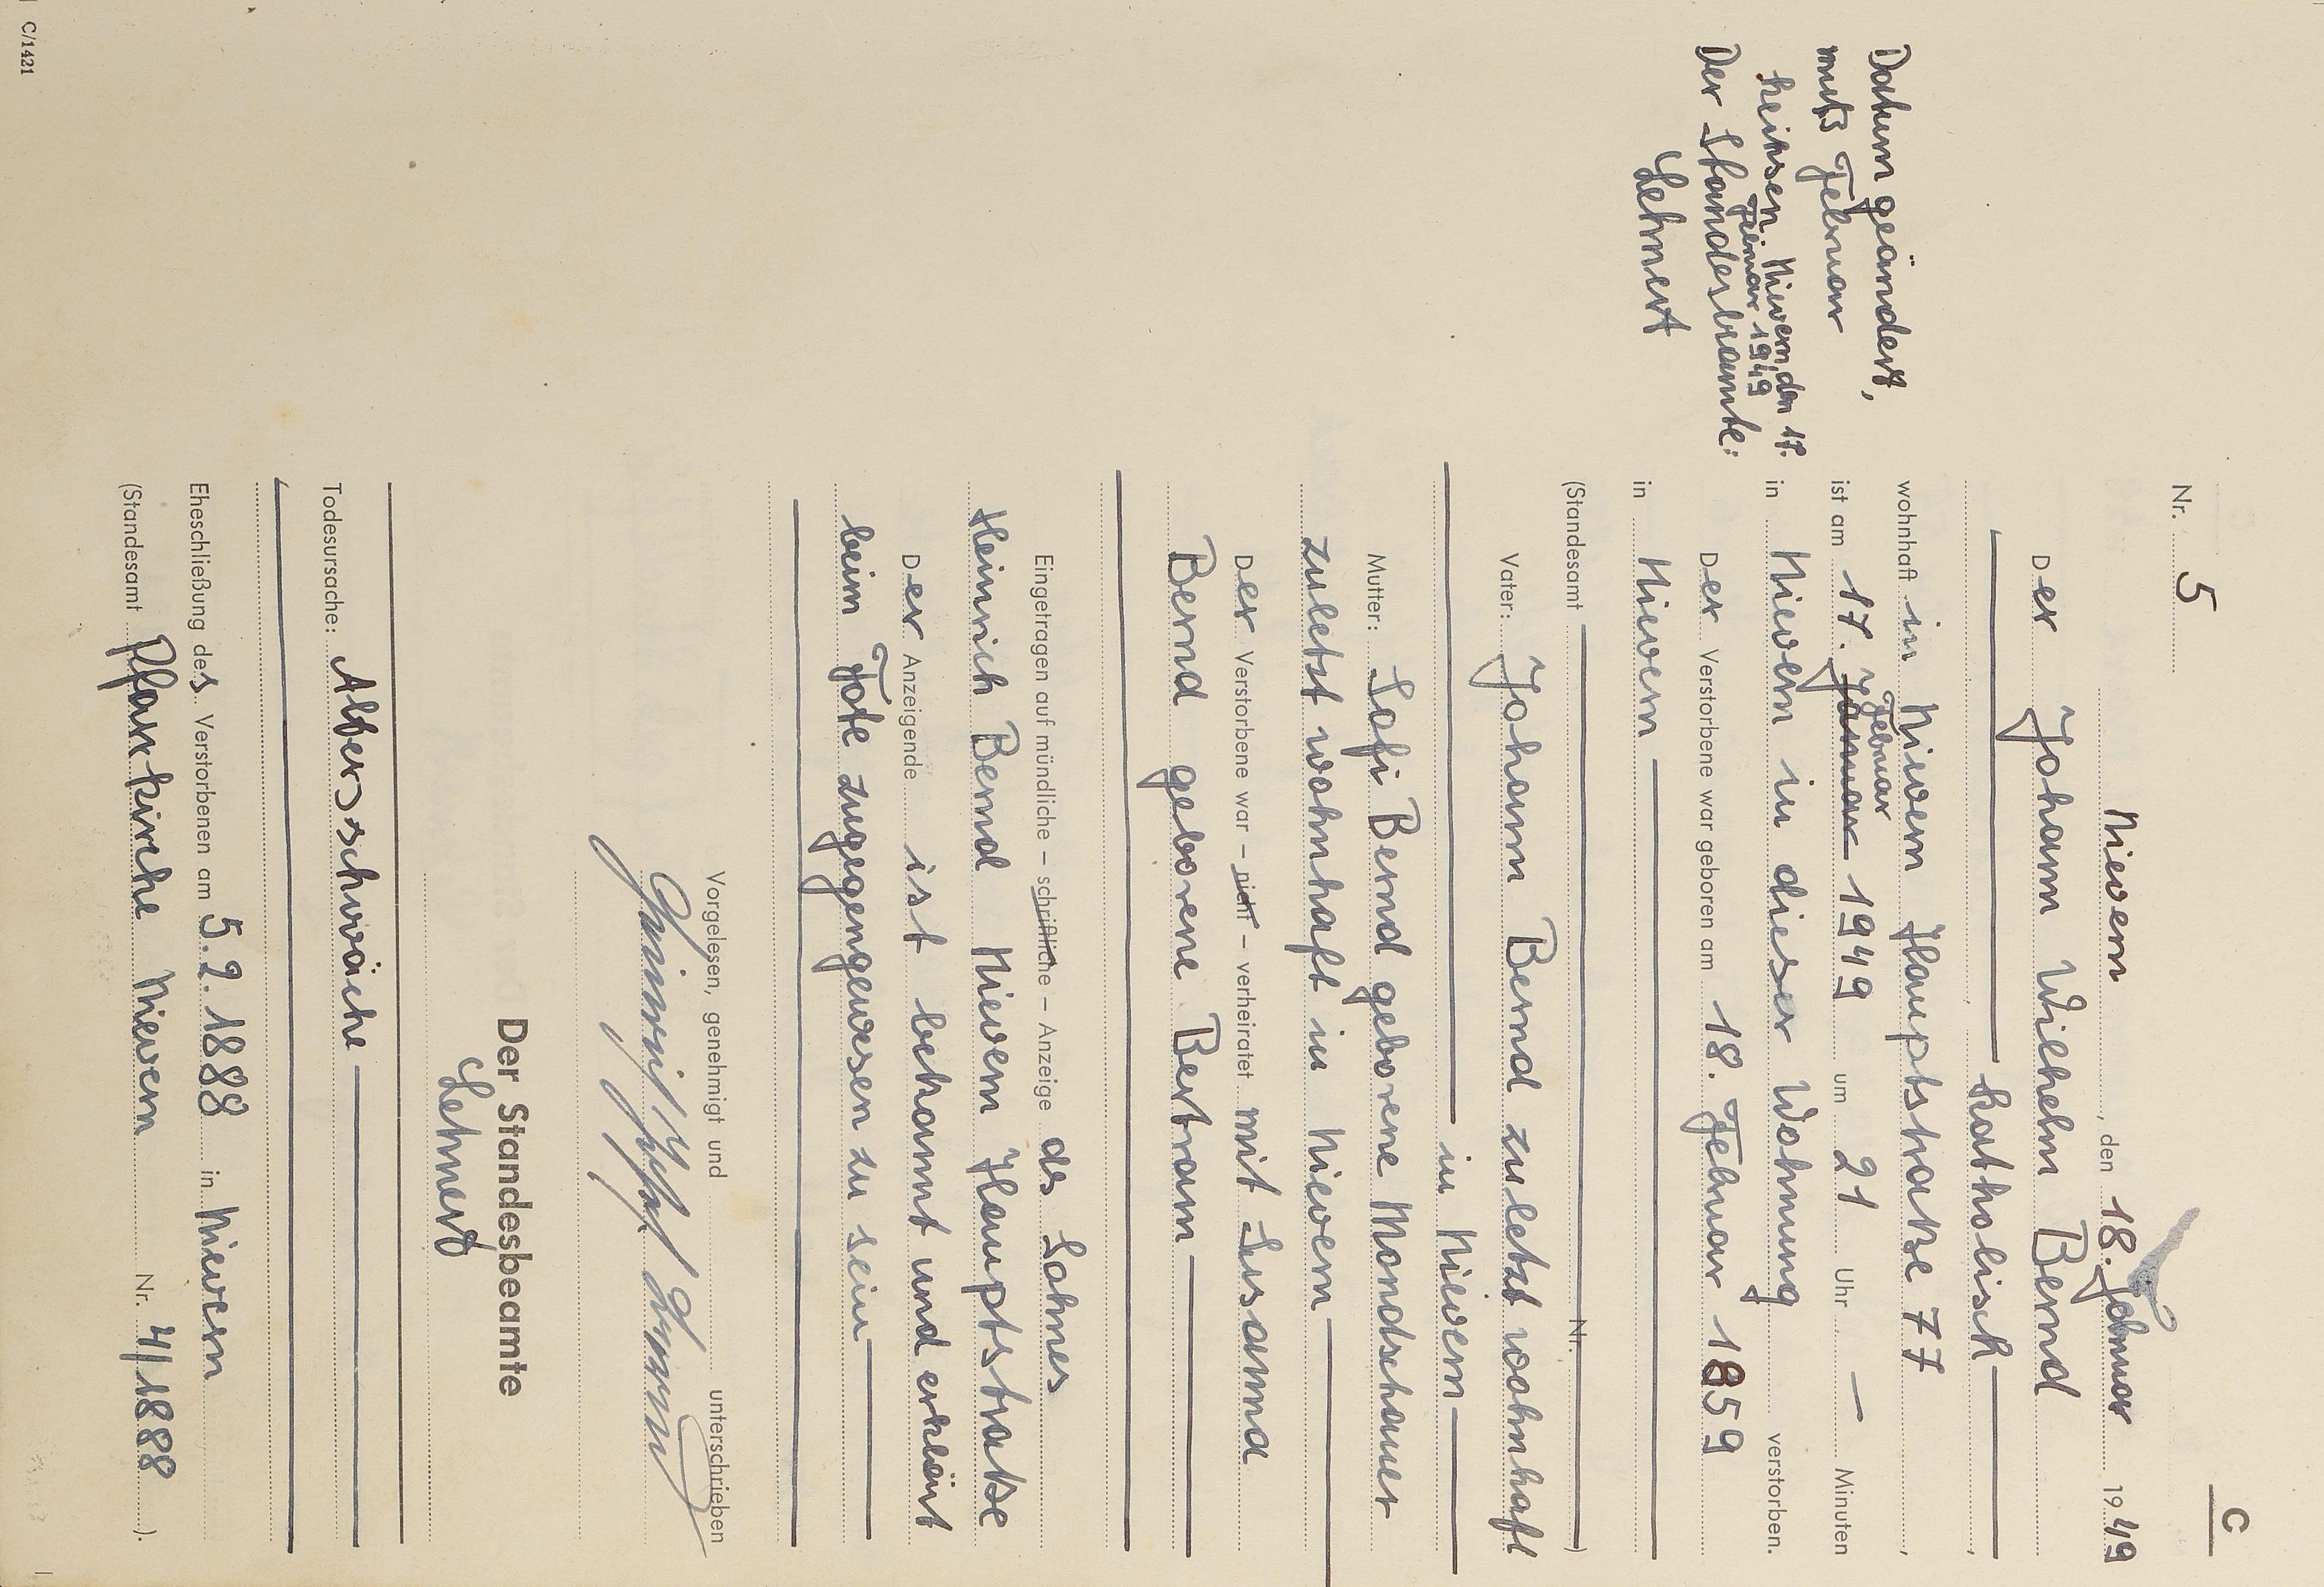 C
Nr. 5
Nievern, den 18. Februar 1949
Der Johann Wilhelm Bernd
katholisch
wohnhaft in Nievern Hauptstraße 77
Februar
ist am 17. Januar 1949 um 21 Uhr — Minuten
in Nievern in dieser Wohnung verstorben.
Der Verstorbene war geboren am 18. Februar 1859
in Nievern
(Standesamt Nr. )
Vater: Johann Bernd zuletzt wohnhaft
in Nievern
Mutter: Sofi Bernd geborene Mondschauer
zuletzt wohnhaft in Nievern
Der Verstorbene war – nicht – verheiratet mit Susanna
Bernd geborene Bertram
Eingetragen auf mündliche – schriftliche – Anzeige des Sohnes
Heinrich Bernd Nievern Hauptstraße
Der Anzeigende ist bekannt und erklärt
beim Tote zugegengewesen zu sein
Vorgelesen, genehmigt und unterschrieben
Der Standesbeamte
Lehnert
Todesursache: Altersschwäche
Eheschließung des Verstorbenen am 5.2.1888 in Nievern
(Standesamt Pfarrkirche Nievern Nr. 4/1888 ).
Datum geändert,
muß Februar
heißen. Nievern, den 17.
Februar 1949
Der Standesbeamte:
Lehnert
C/1421